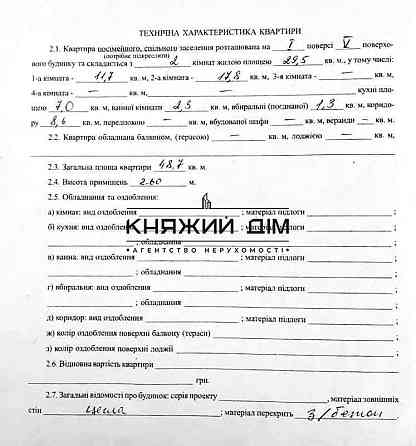 ТЕХНІЧНА ХАРАКТЕРИСТИКА КВАРТИРИ
2.1. Квартира посімейного, спільного заселення розташована на I поверсі V поверхо-
(потрібне підкреслити)
вого будинку та складається з 2 кімнат жилою площею 29,5 кв. м., у тому числі:
1-а кімната - 11,7 кв. м, 2-а кімната - 17,8 кв. м, 3-я кімната - — кв. м,
4-а кімната - — кухні пло-
щею 7,0 кв. м, ванної кімнати 2,3 кв. м, вбиральні (поєднаної) 1,3 кв. м, коридо-
ру 8,6 кв. м, передпокою — кв. м, вбудованої шафи — кв. м, веранди — кв. м.
2.2. Квартира обладнана балконом, (терасою) — кв. м, лоджією — кв. м.
2.3. Загальна площа квартири 48,7 кв. м.
2.4. Висота приміщень 2.60 м.
2.5. Обладнання та оздоблення:
а) кімнат: вид оздоблення ; матеріал підлоги
б) кухня: вид оздоблення ; матеріал підлоги
; обладнання
КНЯЖИЙ ДІМ
•АГЕНТСТВО НЕРУХОМОСТІ•
в) ванна: вид оздоблення ; матеріал підлоги ;
; обладнання
г) вбиральня: вид оздоблення ; матеріал підлоги ;
; обладнання
д) коридор: вид оздоблення ; матеріал підлоги ;
ж) колір оздоблення поверхні балкону (тераси)
з) колір оздоблення поверхні лоджії
2.6. Відновна вартість квартири
грн.
2.7. Загальні відомості про будинок: серія проекту , матеріал зовнішніх
стін цегла ; матеріал перекрить з/бетон